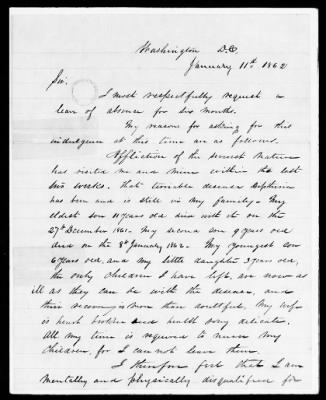 Washington D.C.
January 11th 1862
Sir:
I most respectfully request a
leave of absence for six months.
My reasons for asking for this
indulgence at this time are as follows.
Affliction of the severest nature
has visited me and mine within the last
six weeks. that terrible disease Diptheria
has been and is still in my family. My
eldest son 11 years old died with it on the
27th December 1861. My second son 9 years old
died on the 8th January 1862. My youngest son
6 years old, and my little daughter 3 years old,
the only children I have left, are now as
ill as they can be with the disease, and
their recovery is more than doubtful. My wife
is heart broken and health very delicate.
All my time is required to nurse my
children, for I can not leave them.
I therefore feel that I am
mentally and physically disqualified for